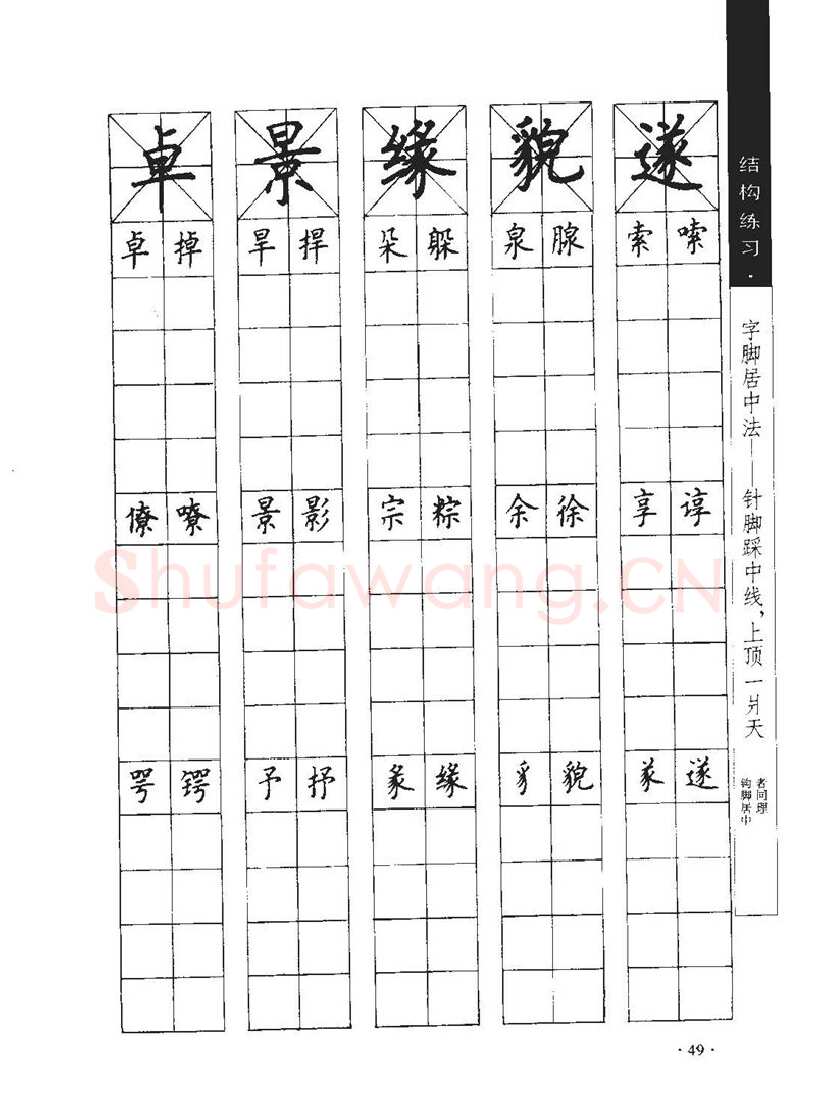 结构练习·
字脚居中法——针脚踩中线，上顶一爿天
钩脚居中
者同理
卓 景 缘 貌 遂
卓 掉 旱 捍 朵 躲 泉 腺 索 嗦
僚 嘹 景 影 宗 粽 余 徐 享 谆
咢 锷 予 抒 彖 缘 豸 貌 㒸 遂
Shufawang.CN
·49·